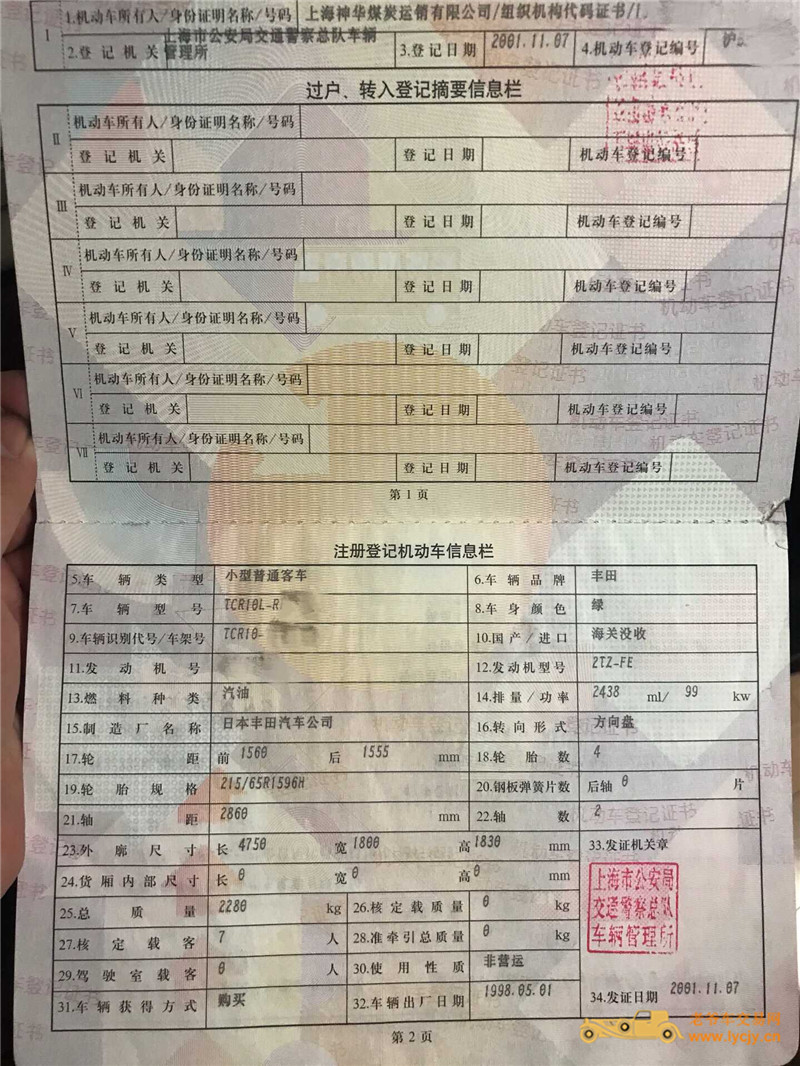 1 1.机动车所有人/身份证明名称/号码 上海神华煤炭运销有限公司/组织机构代码证书/1
2.登记机关 上海市公安局交通警察总队车辆管理所 3.登记日期 2001.11.07 4.机动车登记编号 沪
过户、转入登记摘要信息栏
II 机动车所有人/身份证明名称/号码
登记机关 登记日期 机动车登记编号
III 机动车所有人/身份证明名称/号码
登记机关 登记日期 机动车登记编号
IV 机动车所有人/身份证明名称/号码
登记机关 登记日期 机动车登记编号
V 机动车所有人/身份证明名称/号码
登记机关 登记日期 机动车登记编号
VI 机动车所有人/身份证明名称/号码
登记机关 登记日期 机动车登记编号
VII 机动车所有人/身份证明名称/号码
登记机关 登记日期 机动车登记编号
第1页
注册登记机动车信息栏
5.车辆类型 小型普通客车 6.车辆品牌 丰田
7.车辆型号 TCR10L-R 8.车身颜色 绿
9.车辆识别代号/车架号 TCR10- 10.国产/进口 海关没收
11.发动机号 12.发动机型号 2TZ-FE
13.燃料种类 汽油 14.排量/功率 2438 ml/ 99 kw
15.制造厂名称 日本丰田汽车公司 16.转向形式 方向盘
17.轮距 前 1560 后 1555 mm 18.轮胎数 4
19.轮胎规格 215/65R1596H 20.钢板弹簧片数 后轴 0 片
21.轴距 2860 mm 22.轴数 2
23.外廓尺寸 长 4750 宽 1800 高 1830 mm 33.发证机关章
24.货厢内部尺寸 长 0 宽 0 高 0 mm
上海市公安局
交通警察总队
车辆管理所
25.总质量 2280 kg 26.核定载质量 0 kg
27.核定载客 7 人 28.准牵引总质量 0 kg
29.驾驶室载客 0 人 30.使用性质 非营运
31.车辆获得方式 购买 32.车辆出厂日期 1998.05.01 34.发证日期 2001.11.07
第2页
老爷车交易网
www.lycjy.cn